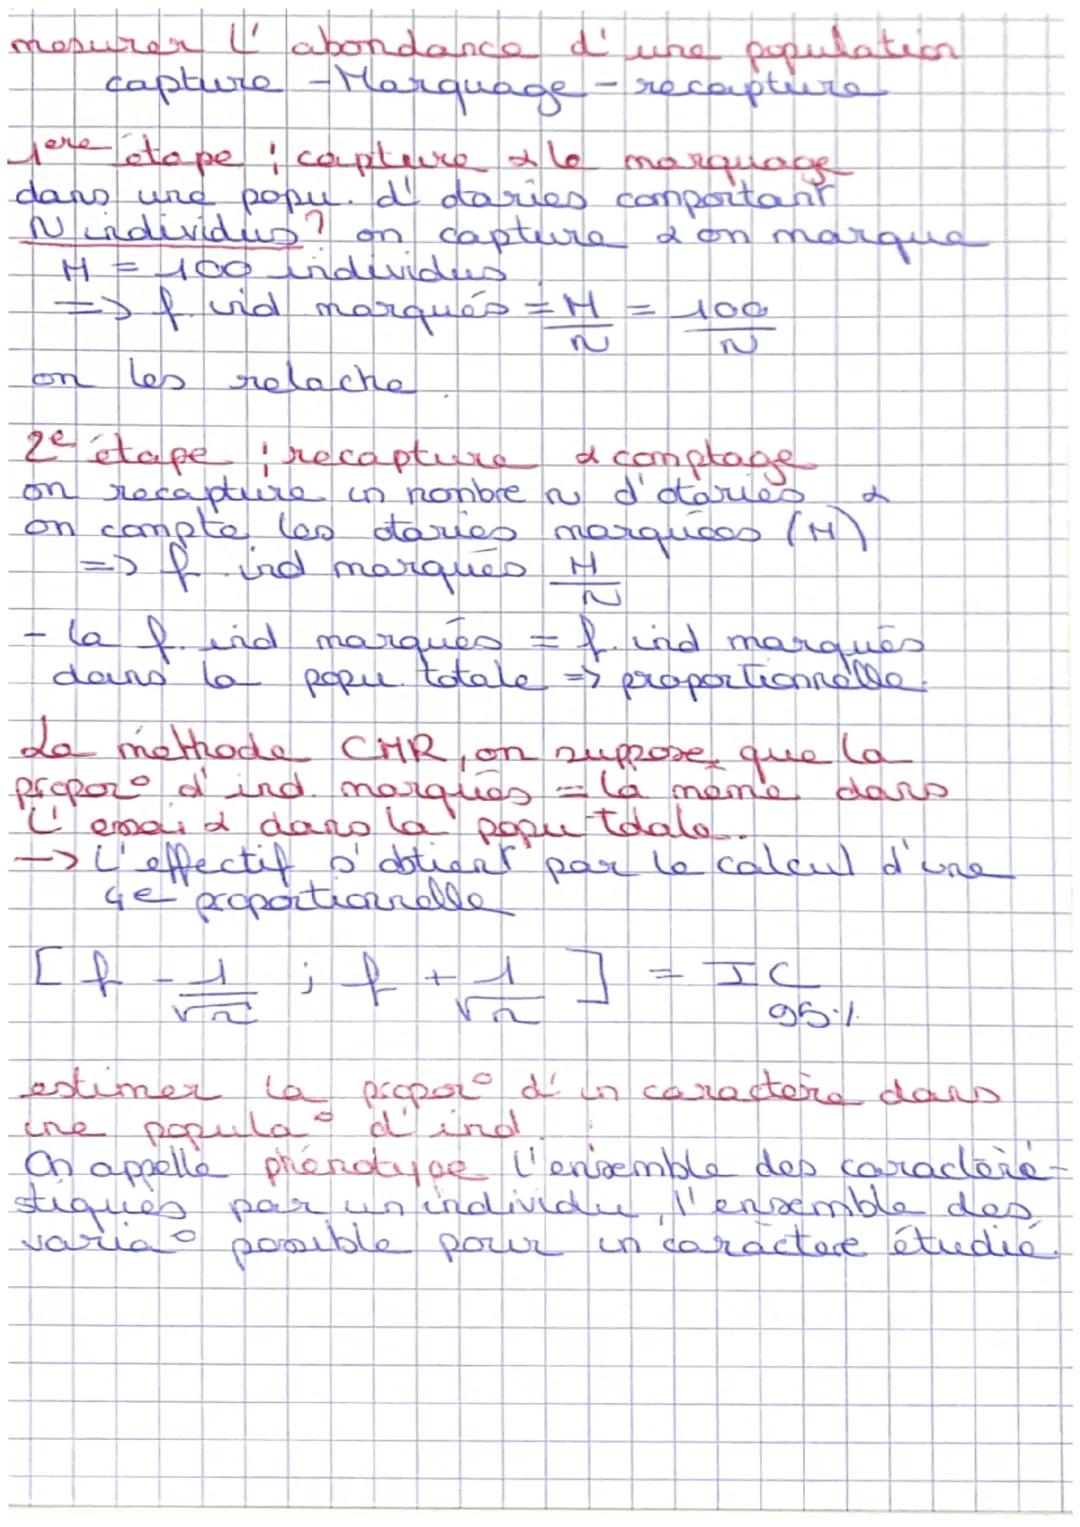 mesurer l'abondance d'une population
capture - Marquage - recapture
1ere étape : capture & le marquage
dans une popu. d'otaries comportant
N individus? on capture & on marque
M = 100 individus
=> f. ind marqués = M/N = 100/N
on les relache.
2e étape : recapture & comptage
on recapture un nombre n d'otaries &
on compte les otaries marquées (M)
=> f ind marqués M/n
- la f. ind marqués = f. ind marqués
dans la popu. totale => proportionnelle.
La méthode CMR, on suppose que la
propor° d'ind. marqués = la même dans
l'essai & dans la popu totale.
-> L'effectif s'obtient par le calcul d'une
4e proportionnelle
[f - 1/√n ; f + 1/√n] = IC 95%
estimer la propor° d'un caractère dans
une popula° d'ind.
On appelle phénotype l'ensemble des caractéri-
stiques par un individu, l'ensemble des
varia° possible pour un caractère étudié.